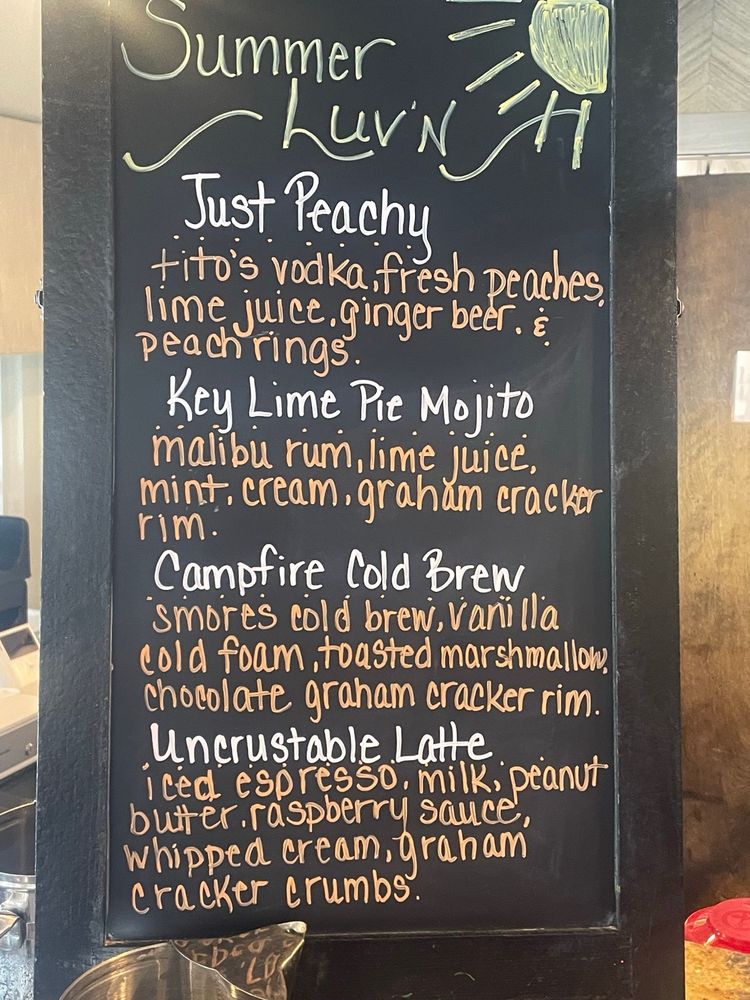 Summer
Luv'n
Just Peachy
tito's vodka, fresh peaches,
lime juice, ginger beer. &
peach rings.
Key Lime Pie Mojito
malibu rum, lime juice,
mint, cream, graham cracker
rim.
Campfire Cold Brew
smores cold brew, vanilla
cold foam, toasted marshmallow,
chocolate graham cracker rim.
Uncrustable Latte
iced espresso, milk, peanut
butter, raspberry sauce,
whipped cream, graham
cracker crumbs.